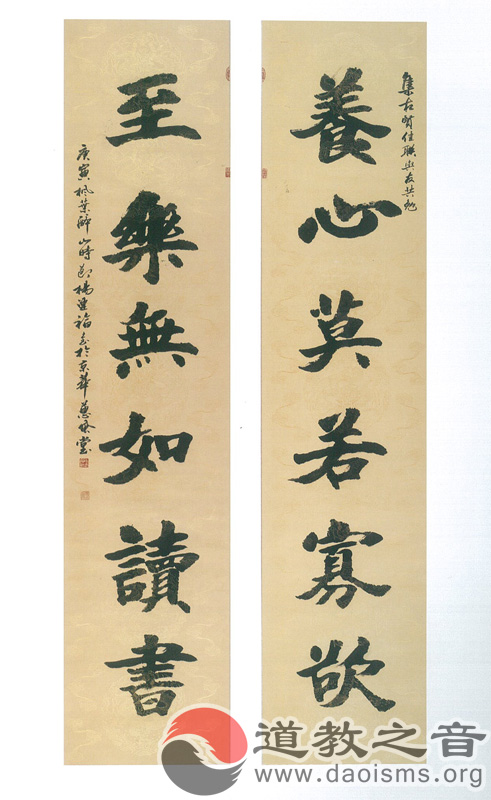 集古賢佳聯與友共勉
養心莫若寡欲
至樂無如讀書
庚寅楓葉醉山時節楊進福書於京華
道教之音
www.daoisms.org